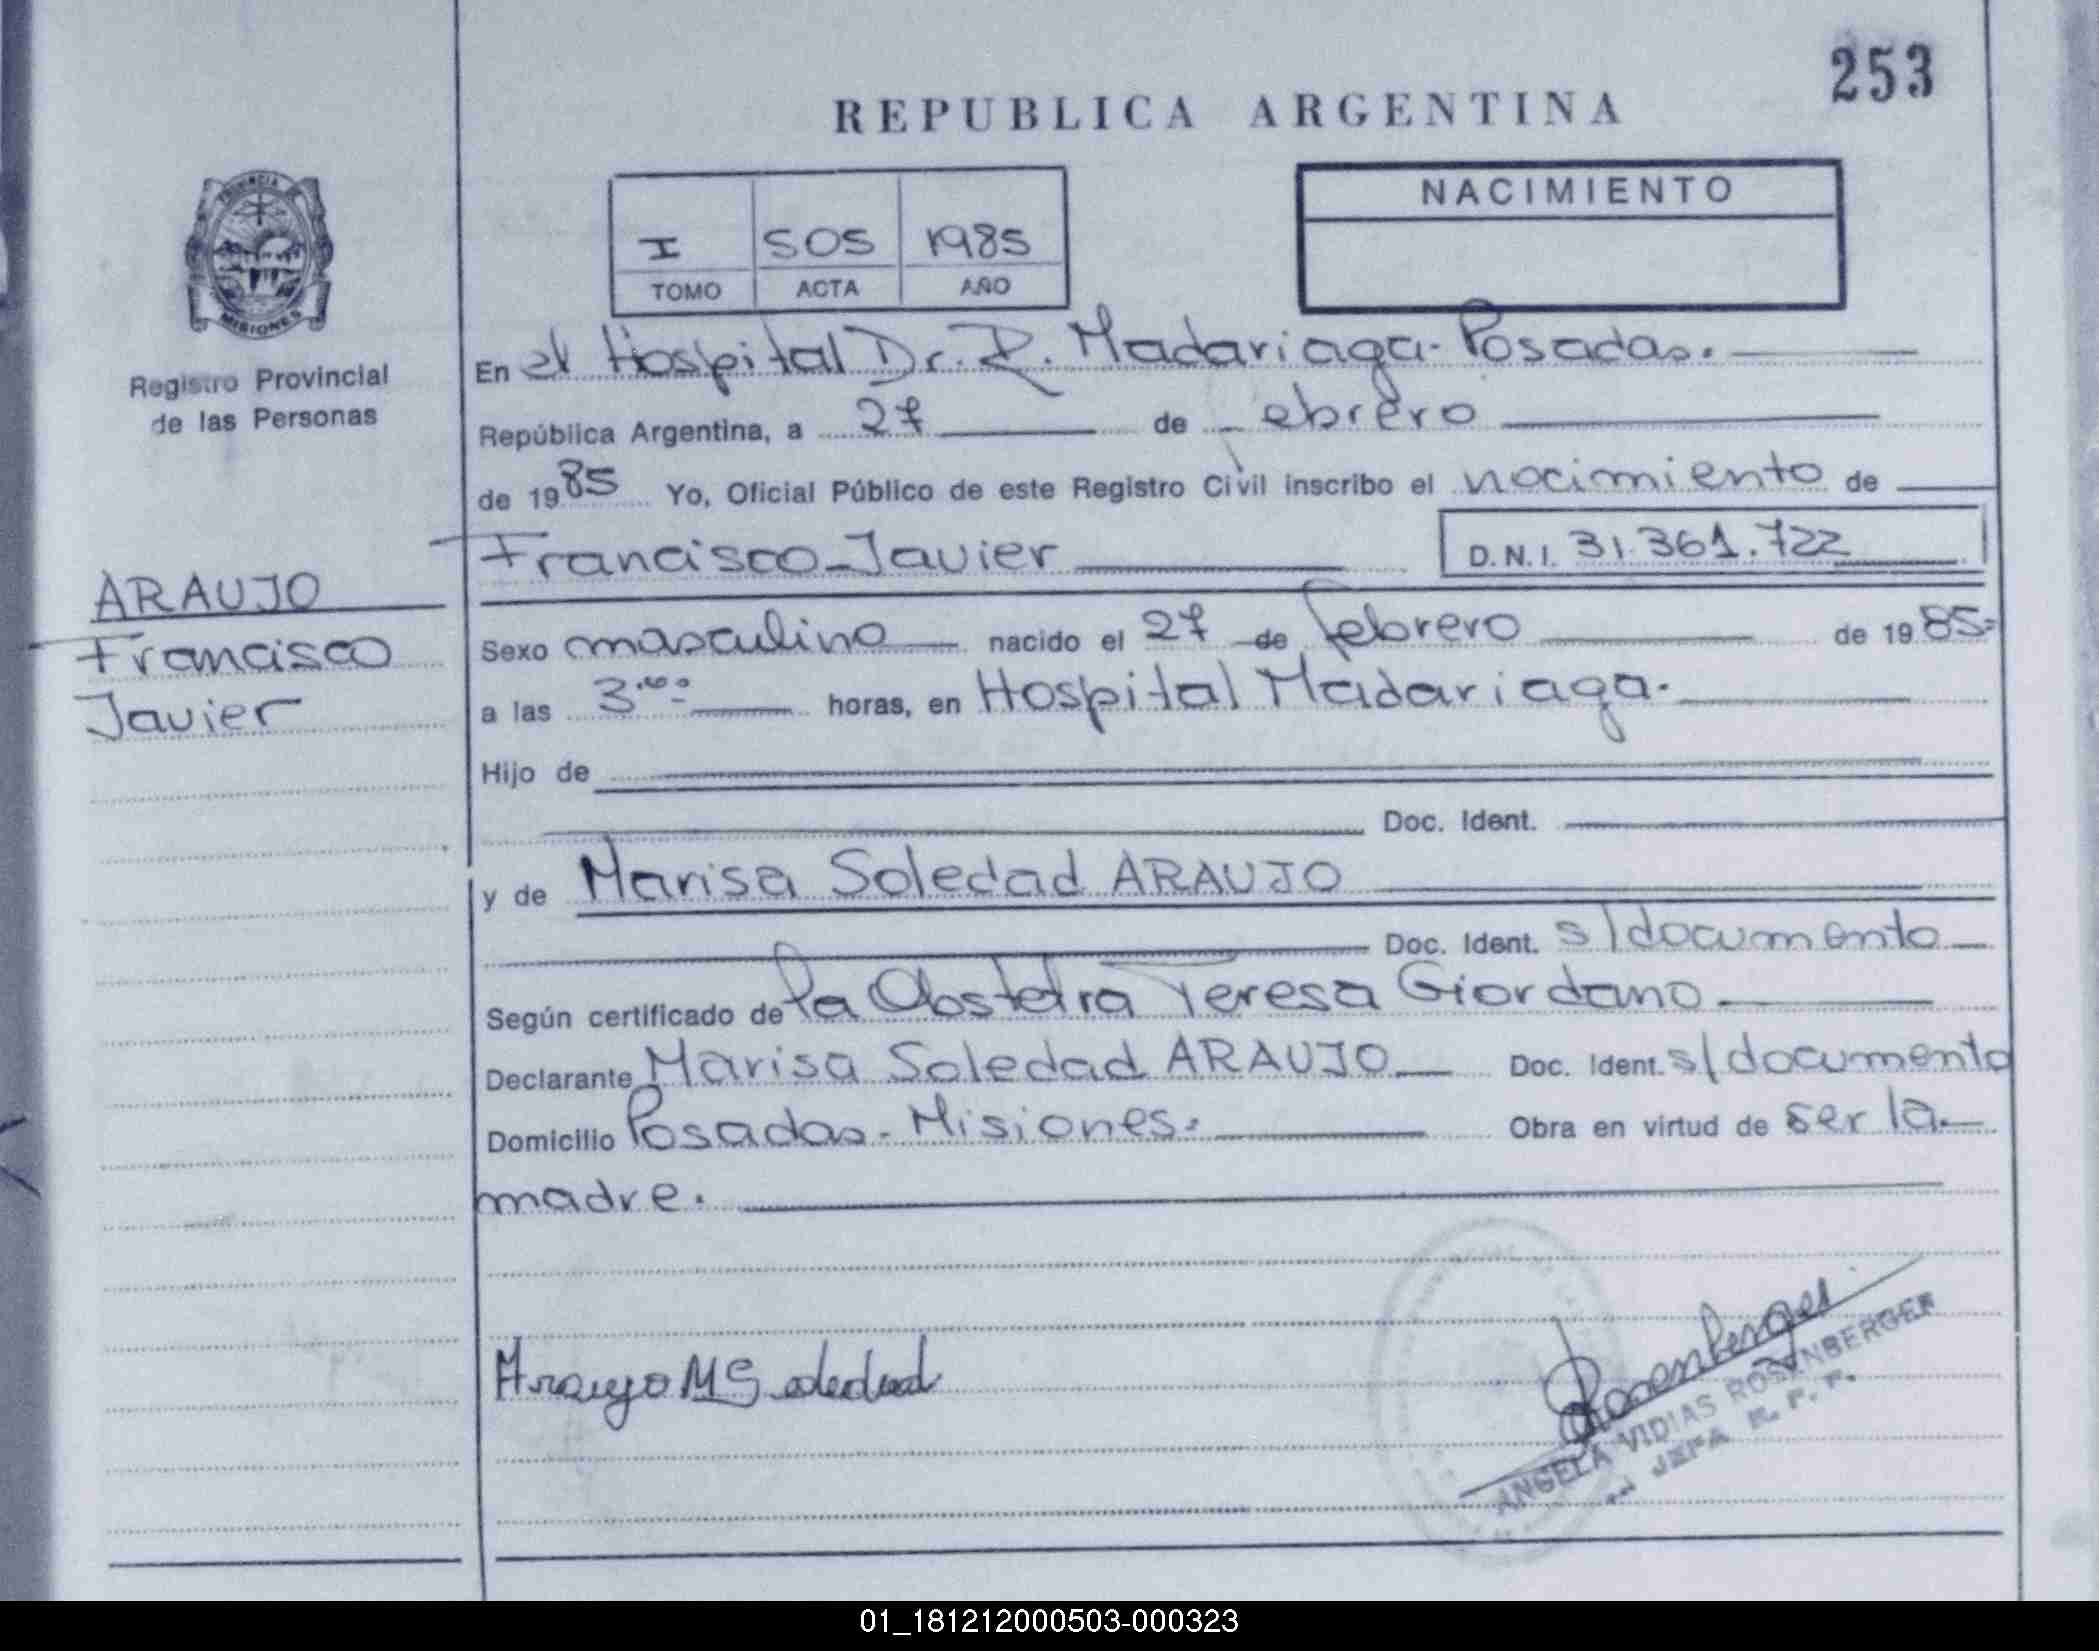 253
REPUBLICA ARGENTINA
PROVINCIA DE
MISIONES
Registro Provincial
de las Personas
I 505 1985
TOMO ACTA AÑO
NACIMIENTO
En el Hospital Dr. R. Madariaga- Posadas.
República Argentina, a 27 de Febrero
de 1985 Yo, Oficial Público de este Registro Civil inscribo el nacimiento de
Francisco Javier D.N.I. 31.361.722
ARAUJO
Francisco
Javier
Sexo masculino nacido el 27 de febrero de 1985=
a las 3.00= horas, en Hospital Madariaga.
Hijo de
Doc. Ident.
y de Marisa Soledad ARAUJO
Doc. Ident. s/documento
Según certificado de la Obstetra Teresa Giordano
Declarante Marisa Soledad ARAUJO Doc. Ident. s/documento
Domicilio Posadas- Misiones. Obra en virtud de ser la
madre.
Araujo M Soledad
Rosenberger
ANGELA VIDIAS ROSENBERGER
JEFA
01_181212000503-000323